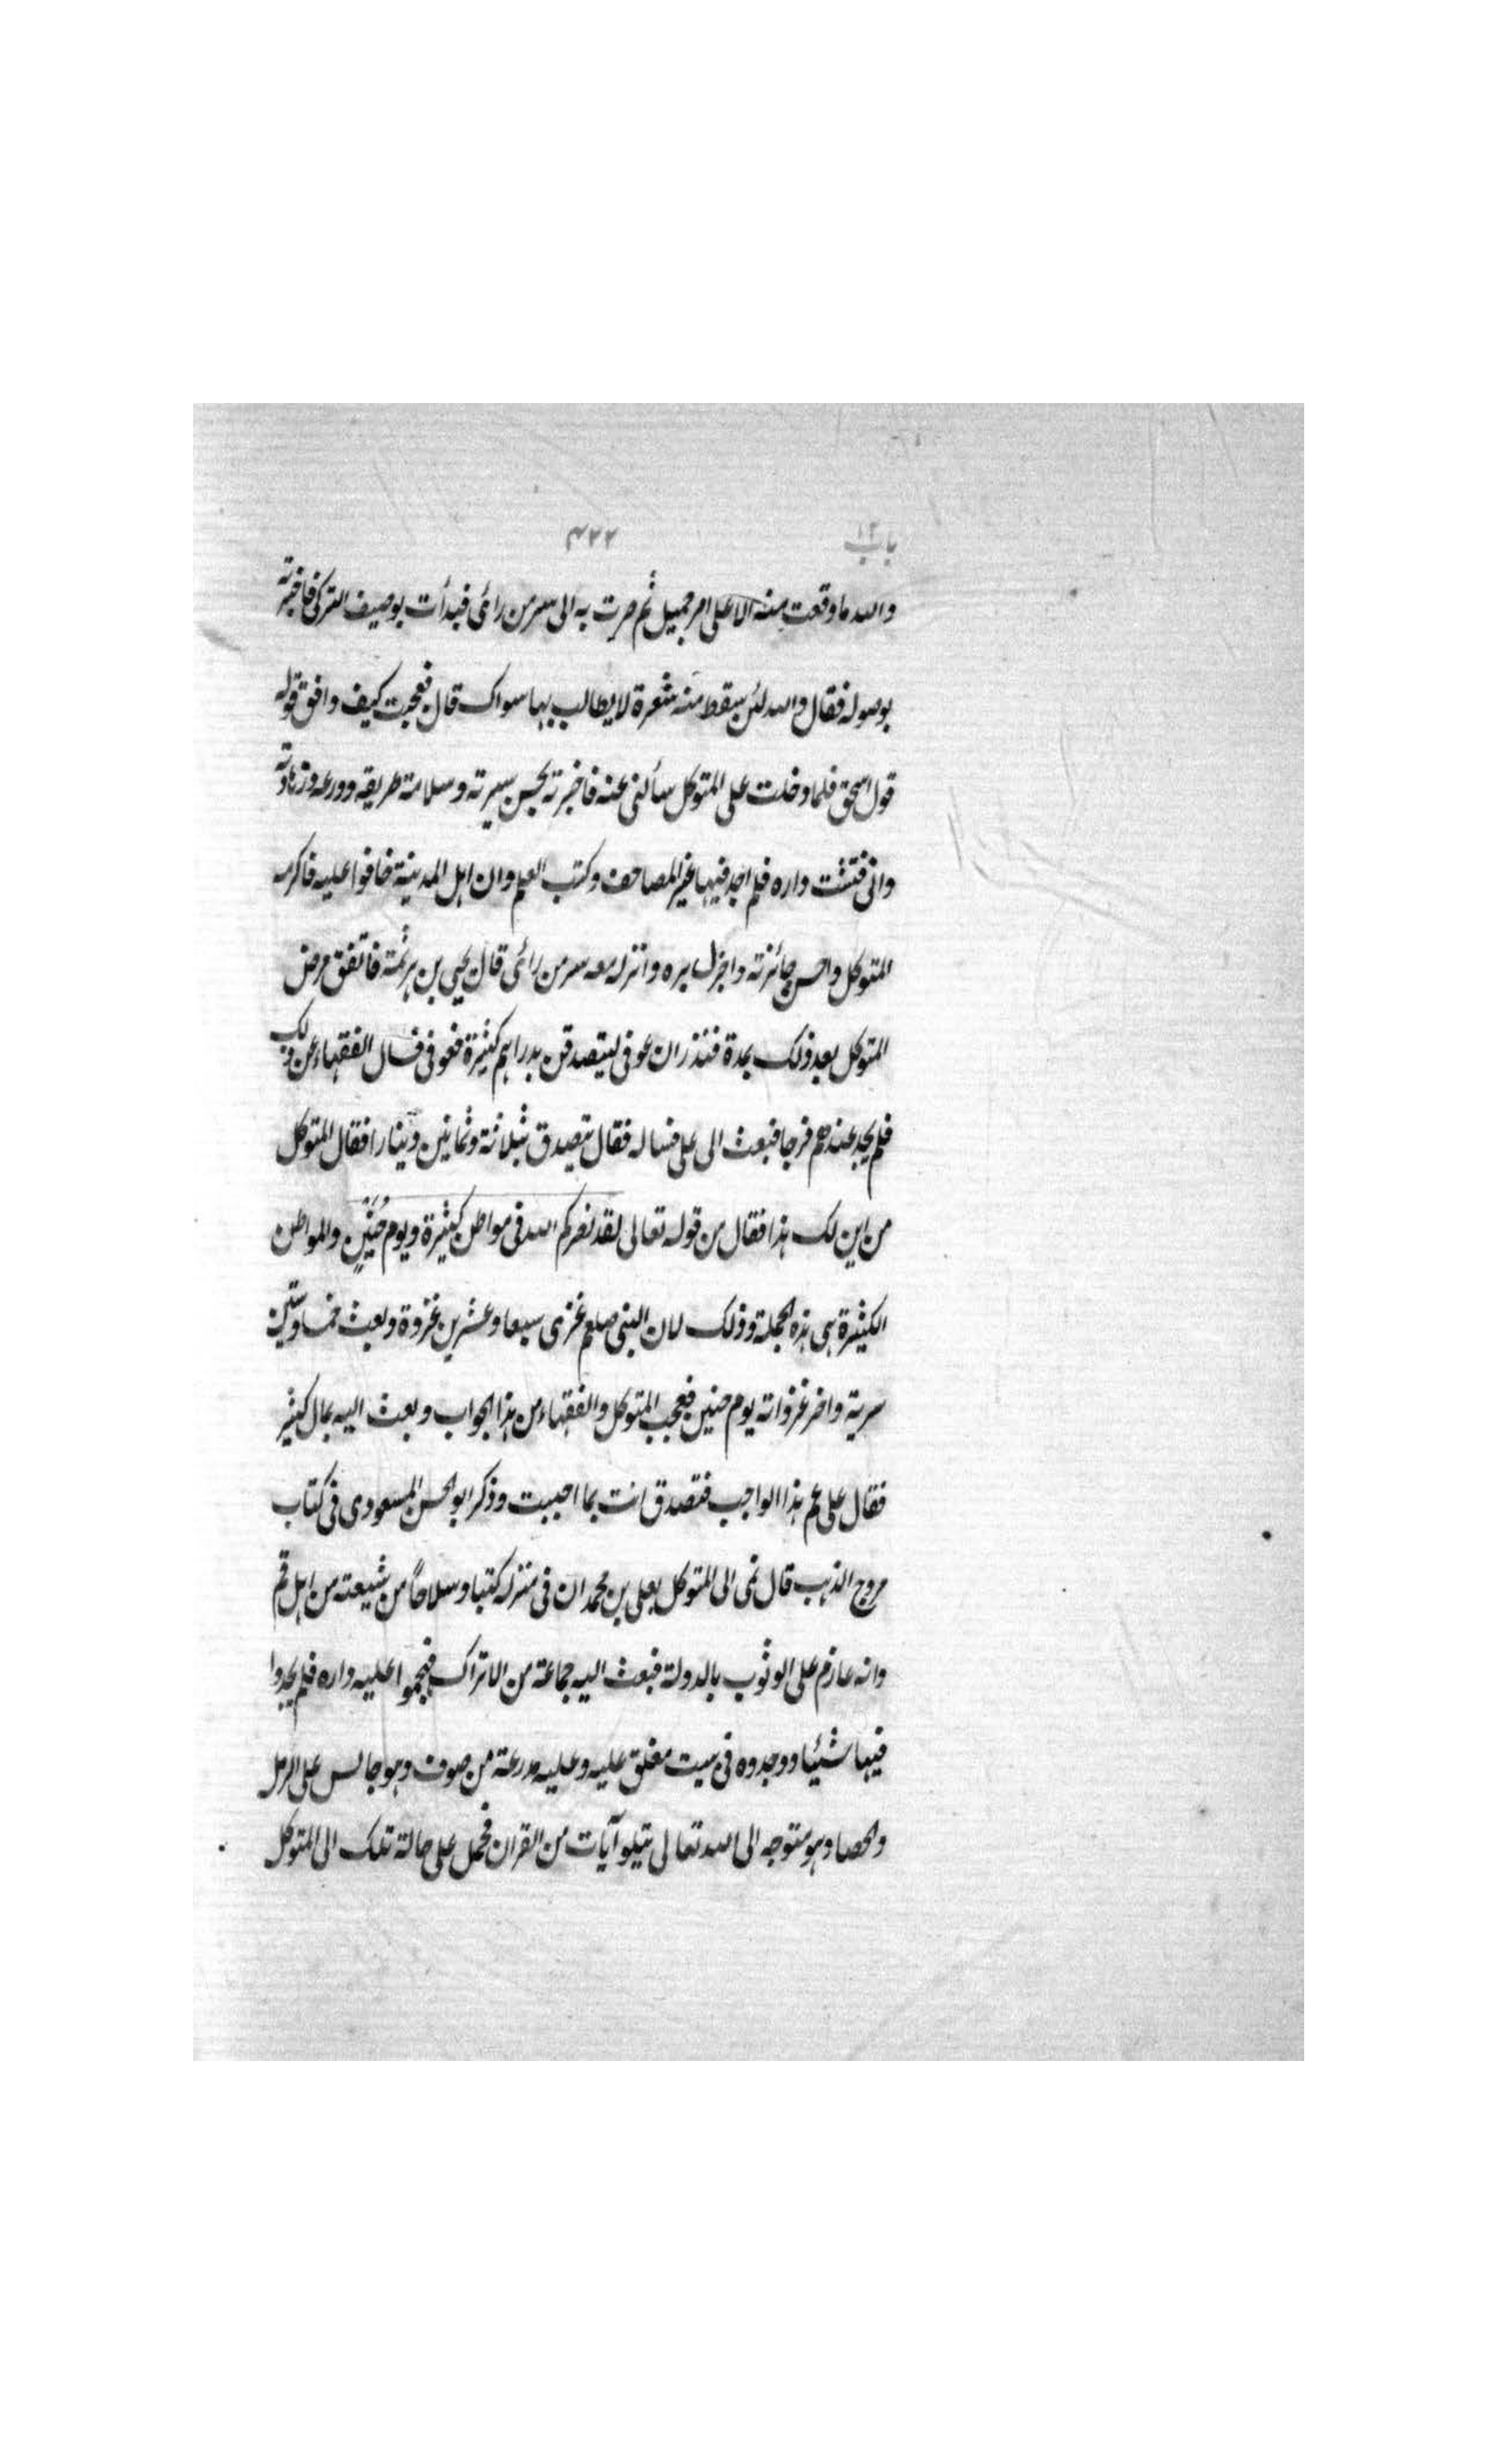 باب ١٢ ٤٢٢
والله ما وقعت منه الا على امر جميل ثم صرت به الى سر من رائى فبدأت بوصيف التركى فاخبرته
بوصوله فقال والله لئن سقط منه شعرة لا يطالب بها سواك قال فعجبت كيف وافق قوله
قول اسحق فلما دخلت على المتوكل سألنى عنه فاخبرته بحسن سيرته وسلامة طريقه وورعه وزهادته
وانى فتشت داره فلم اجد فيها غير المصاحف وكتب العلم وان اهل المدينة خافوا عليه فاكرمه
المتوكل واحسن جائزته واجزل بره وانزله معه سر من رائى قال يحيى بن هرثمة فاتفق مرض
المتوكل بعد ذلك بمدة فنذر ان عوفى ليتصدقن بدراهم كثيرة فعوفى فسال الفقهاء عن ذلك
فلم يجد عندهم فرجا فبعث الى على فساله فقال يتصدق بثلاثة وثمانين دينارا فقال المتوكل
من اين لك هذا فقال من قوله تعالى لقد نصركم الله فى مواطن كثيرة ويوم حُنَيْنٍ والمواطن
الكثيرة هى هذه الجملة وذلك لان النبى صلعم غزى سبعا وعشرين غزوة وبعث خمسا وستين
سرية واخر غزواته يوم حنين فعجب المتوكل والفقهاء من هذا الجواب وبعث اليه بمال كثير
فقال على عم هذا الواجب فتصدق انت بما احببت وذكر ابو الحسن المسعودى فى كتاب
مروج الذهب قال نمى الى المتوكل بعلى بن محمد ان فى منزله كتبا وسلاحًا من شيعته من اهل قم
وانه عازم على الوثوب بالدولة فبعث اليه جماعة من الاتراك فهجموا عليه داره فلم يجدوا
فيها شيئا ووجدوه فى بيت مغلق عليه وعليه مدرعة من صوف وهو جالس على الرمل
والحصا وهو متوجه الى الله تعالى يتلو آيات من القران فحمل على حالة تلك الى المتوكل